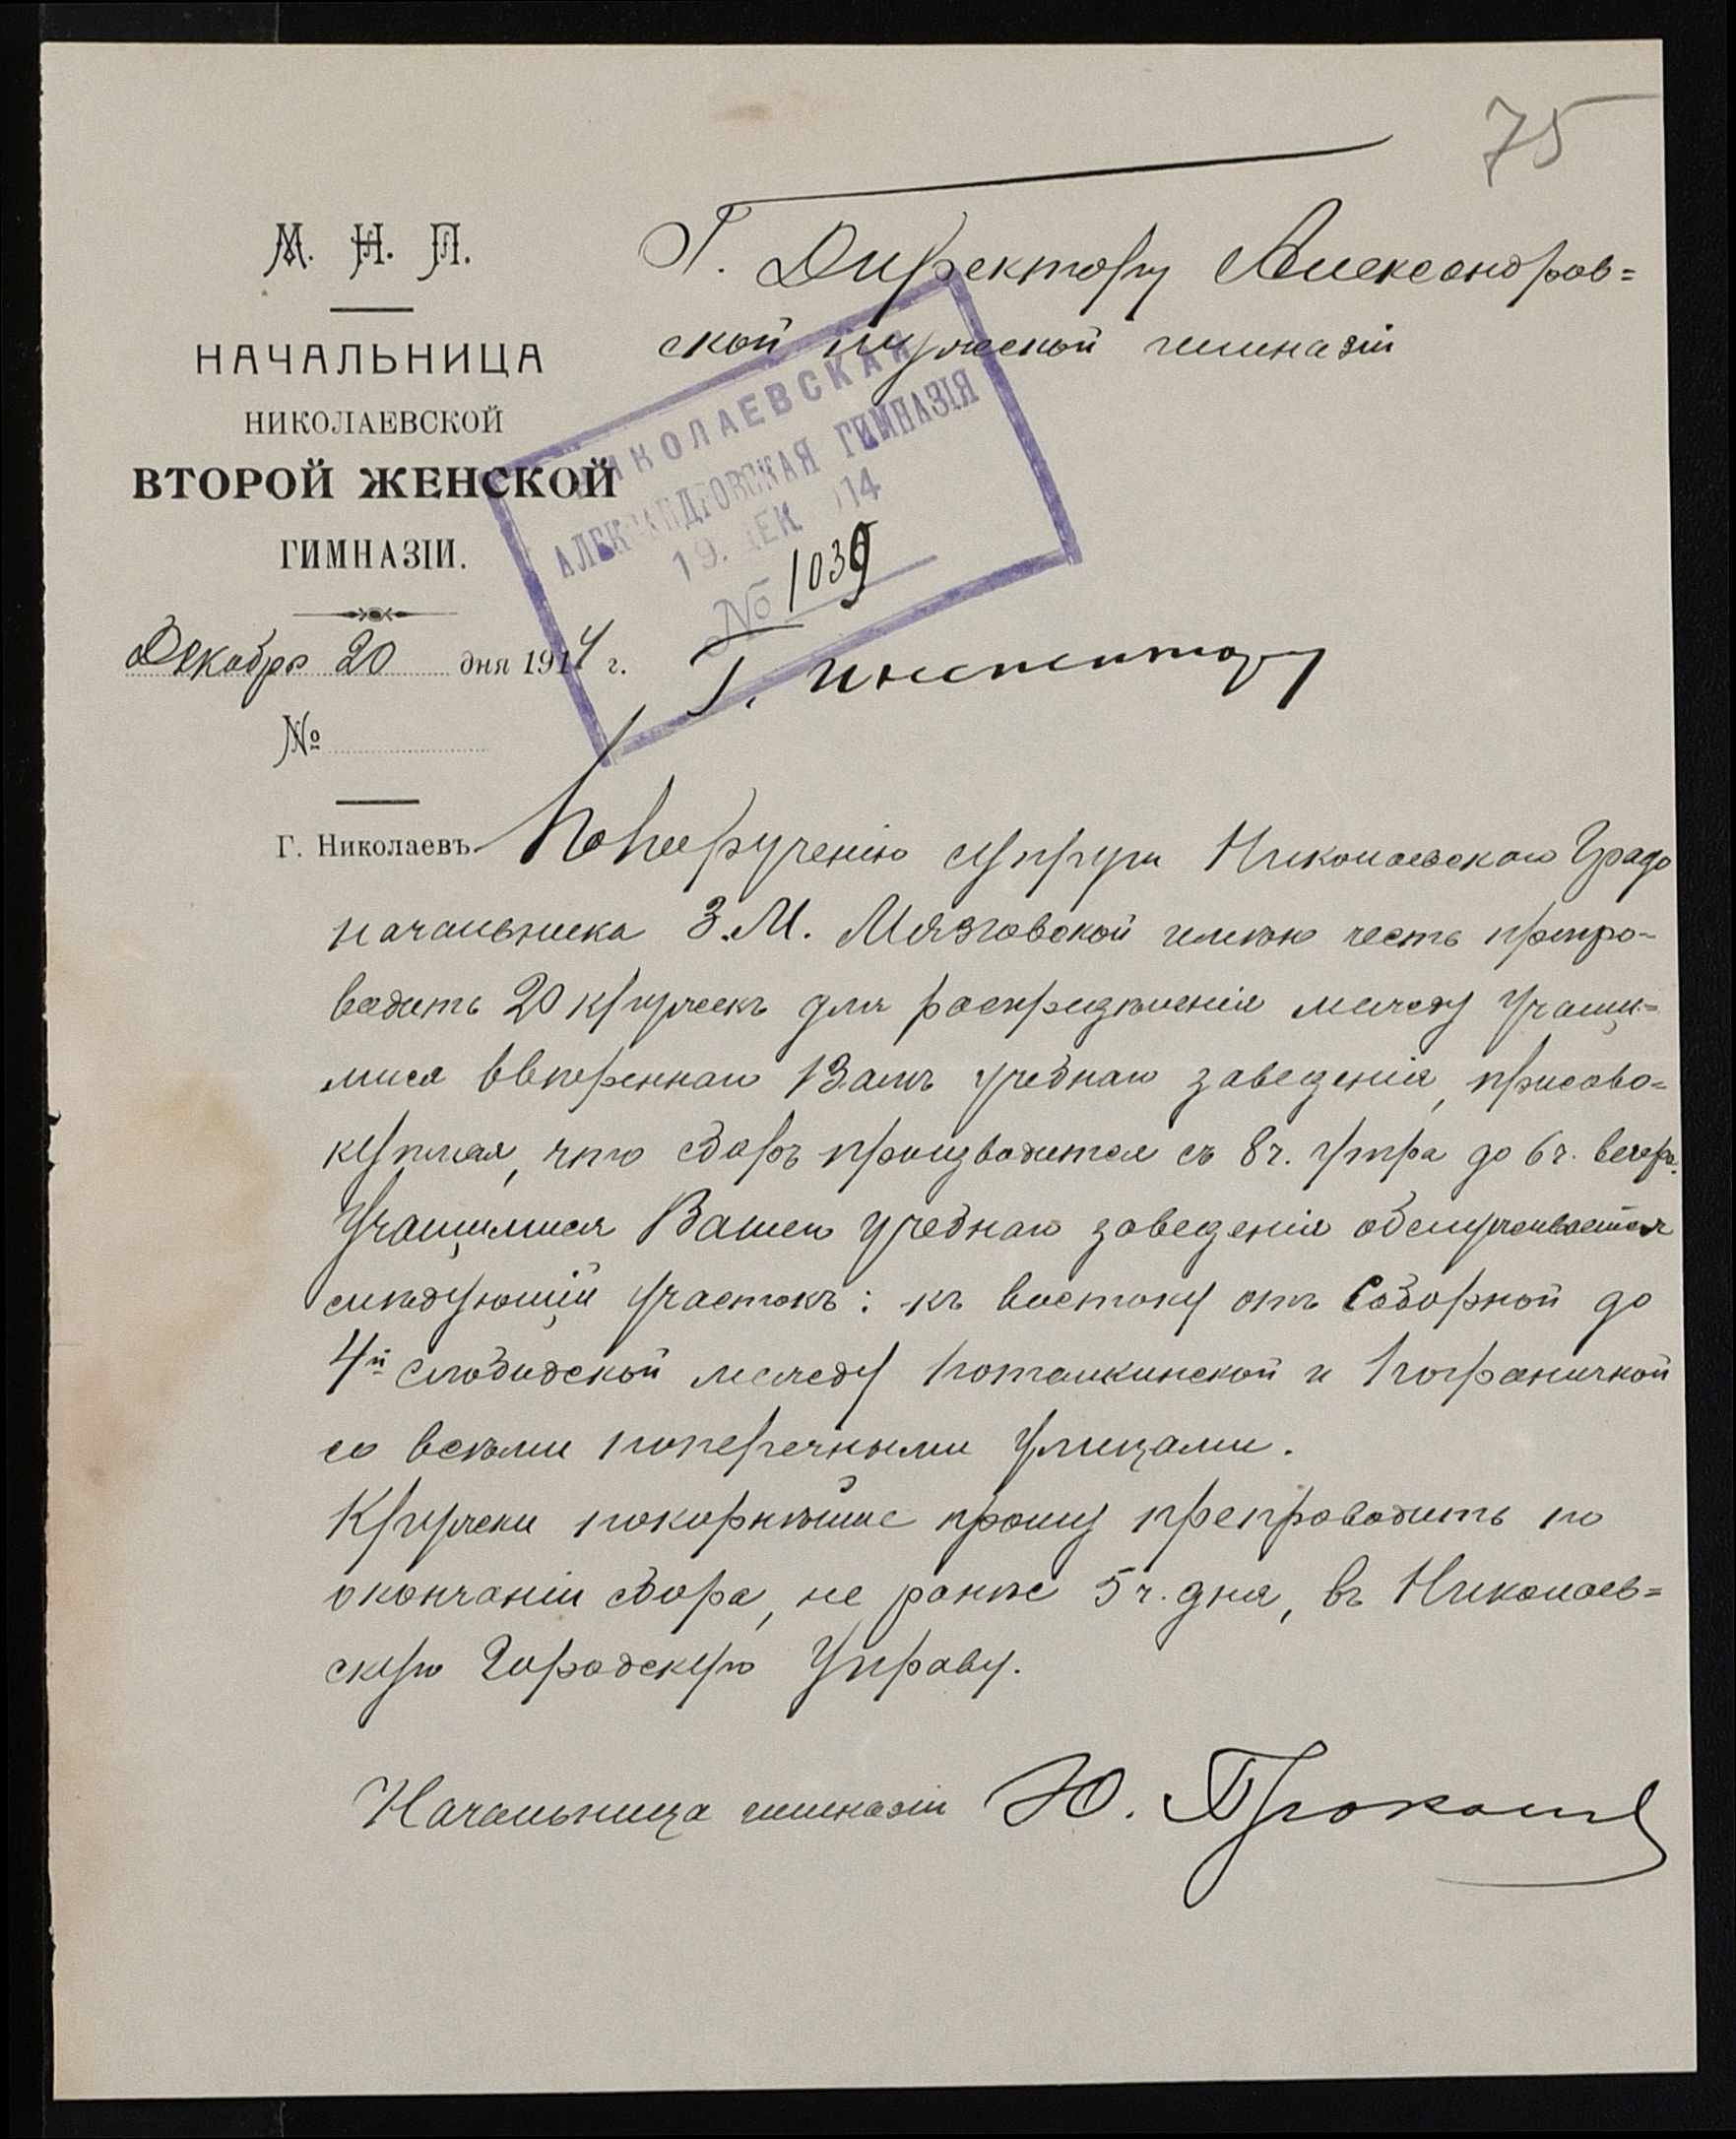 75
М. Н. П.
НАЧАЛЬНИЦА
НИКОЛАЕВСКОЙ
ВТОРОЙ ЖЕНСКОЙ
ГИМНАЗІИ.
Декабря 20 дня 1914 г.
№
Г. Николаевъ.
Г. Директору Александров=
ской мужской гимназіи
НИКОЛАЕВСКАЯ
АЛЕКСАНДРОВСКАЯ ГИМНАЗІЯ
19. ДЕК. 914
№ 1039
Г. Инспектору
По порученію супруги Николаевскаго Градо
начальника З. М. Мязговской имѣю честь препро-
водить 20 кружекъ для распредѣленія между учащи=
мися ввѣреннаго Вамъ учебнаго заведенія, присово=
купляя, что сборъ производится съ 8 ч. утра до 6 ч. вечера.
Учащимися Вашего учебнаго заведенія обслуживается
слѣдующій участокъ: къ востоку отъ Соборной до
4й Слободской между Потемкинской и Пограничной
со всѣми поперечными улицами.
Кружки покорнѣйше прошу препроводить по
окончаніи сбора, не ранѣе 5 ч. дня, въ Николаев=
скую Городскую Управу.
Начальница гимназіи Ю.